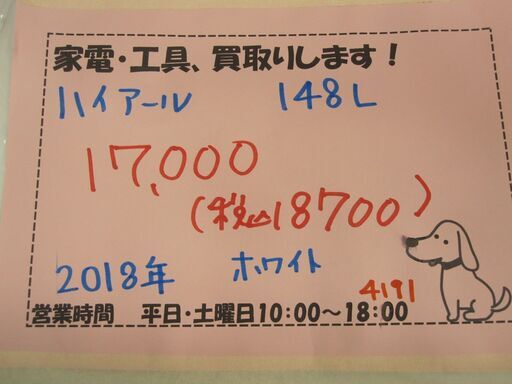 家電・工具、買取りします！
ハイアール 148L
17,000
(税込18700)
2018年 ホワイト
4191
営業時間 平日・土曜日10:00～18:00